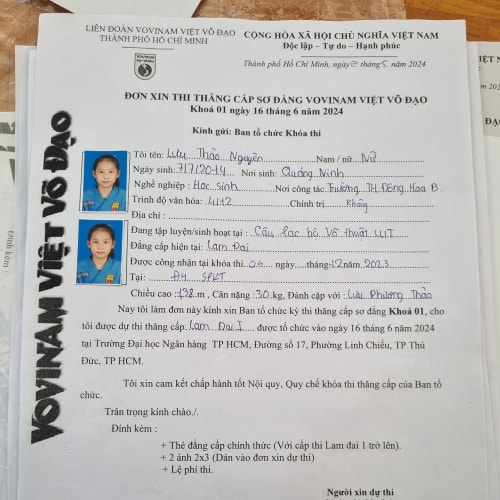 LIÊN ĐOÀN VOVINAM VIỆT VÕ ĐẠO
THÀNH PHỐ HỒ CHÍ MINH
CỘNG HÒA XÃ HỘI CHỦ NGHĨA VIỆT NAM
Độc lập – Tự do – Hạnh phúc
Thành phố Hồ Chí Minh, ngày tháng 5 năm 2024
ĐƠN XIN THI THĂNG CẤP SƠ ĐẲNG VOVINAM VIỆT VÕ ĐẠO
Khoá 01 ngày 16 tháng 6 năm 2024
Kính gửi: Ban tổ chức Khóa thi
Tôi tên: Lưu Thảo Nguyên Nam / nữ: Nữ
Ngày sinh: 7/7/2014 Nơi sinh: Quảng Ninh
Nghề nghiệp: Học sinh Nơi công tác: Trường TH Đông Hòa B.
Trình độ văn hóa: 4/12 Chính trị Không
Địa chỉ :
Đang tập luyện/sinh hoạt tại : Câu lạc bộ Võ thuật
Đẳng cấp hiện tại: Lam Đai
Được công nhận tại khóa thi: 04 ngày tháng 12 năm 2023
Tại: ĐH SPKT
Chiều cao :138 m , Cân nặng :30 kg, Đánh cặp với: Lưu Phương Thảo
Nay tôi làm đơn này kính xin Ban tổ chức kỳ thi thăng cấp sơ đẳng Khoá 01, cho
tôi được dự thi thăng cấp. Lam Đai I được tổ chức vào ngày 16 tháng 6 năm 2024
tại Trường Đại học Ngân hàng TP HCM, Đường số 17, Phường Linh Chiểu, TP Thủ
Đức, TP HCM.
Tôi xin cam kết chấp hành tốt Nội quy, Quy chế khóa thi thăng cấp của Ban tổ
chức.
Trân trọng kính chào./.
Đính kèm :
+ Thẻ đẳng cấp chính thức (Với cấp thi Lam đai 1 trở lên).
+ 2 ảnh 2x3 (Dán vào đơn xin dự thi)
+ Lệ phí thi.
Người xin dự thi
VOVINAM VIỆT VÕ ĐẠO
Đính kèm :